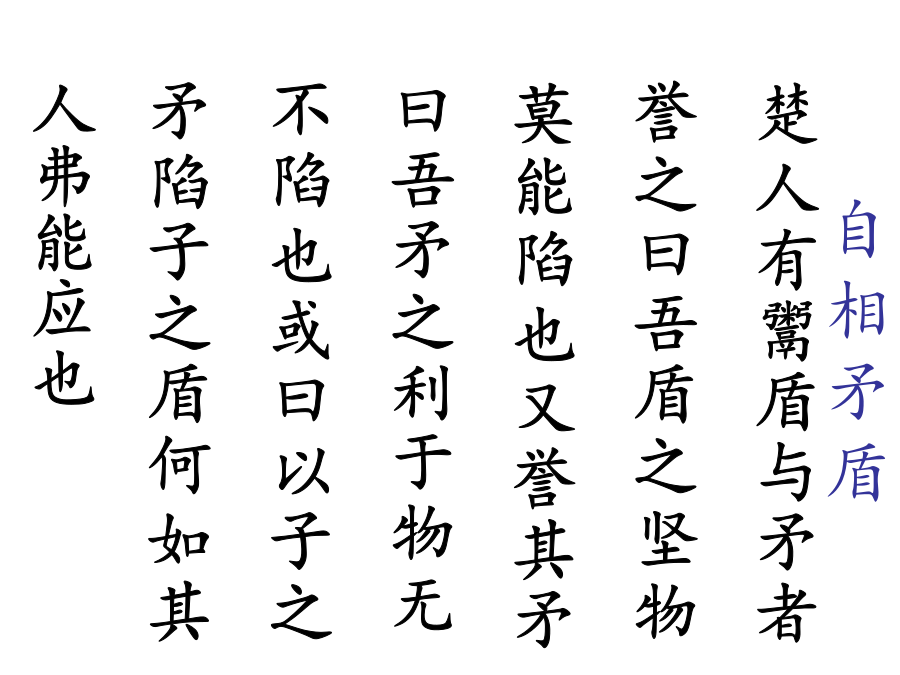 自相矛盾
楚人有鬻盾与矛者
誉之曰吾盾之坚物
莫能陷也又誉其矛
曰吾矛之利于物无
不陷也或曰以子之
矛陷子之盾何如其
人弗能应也